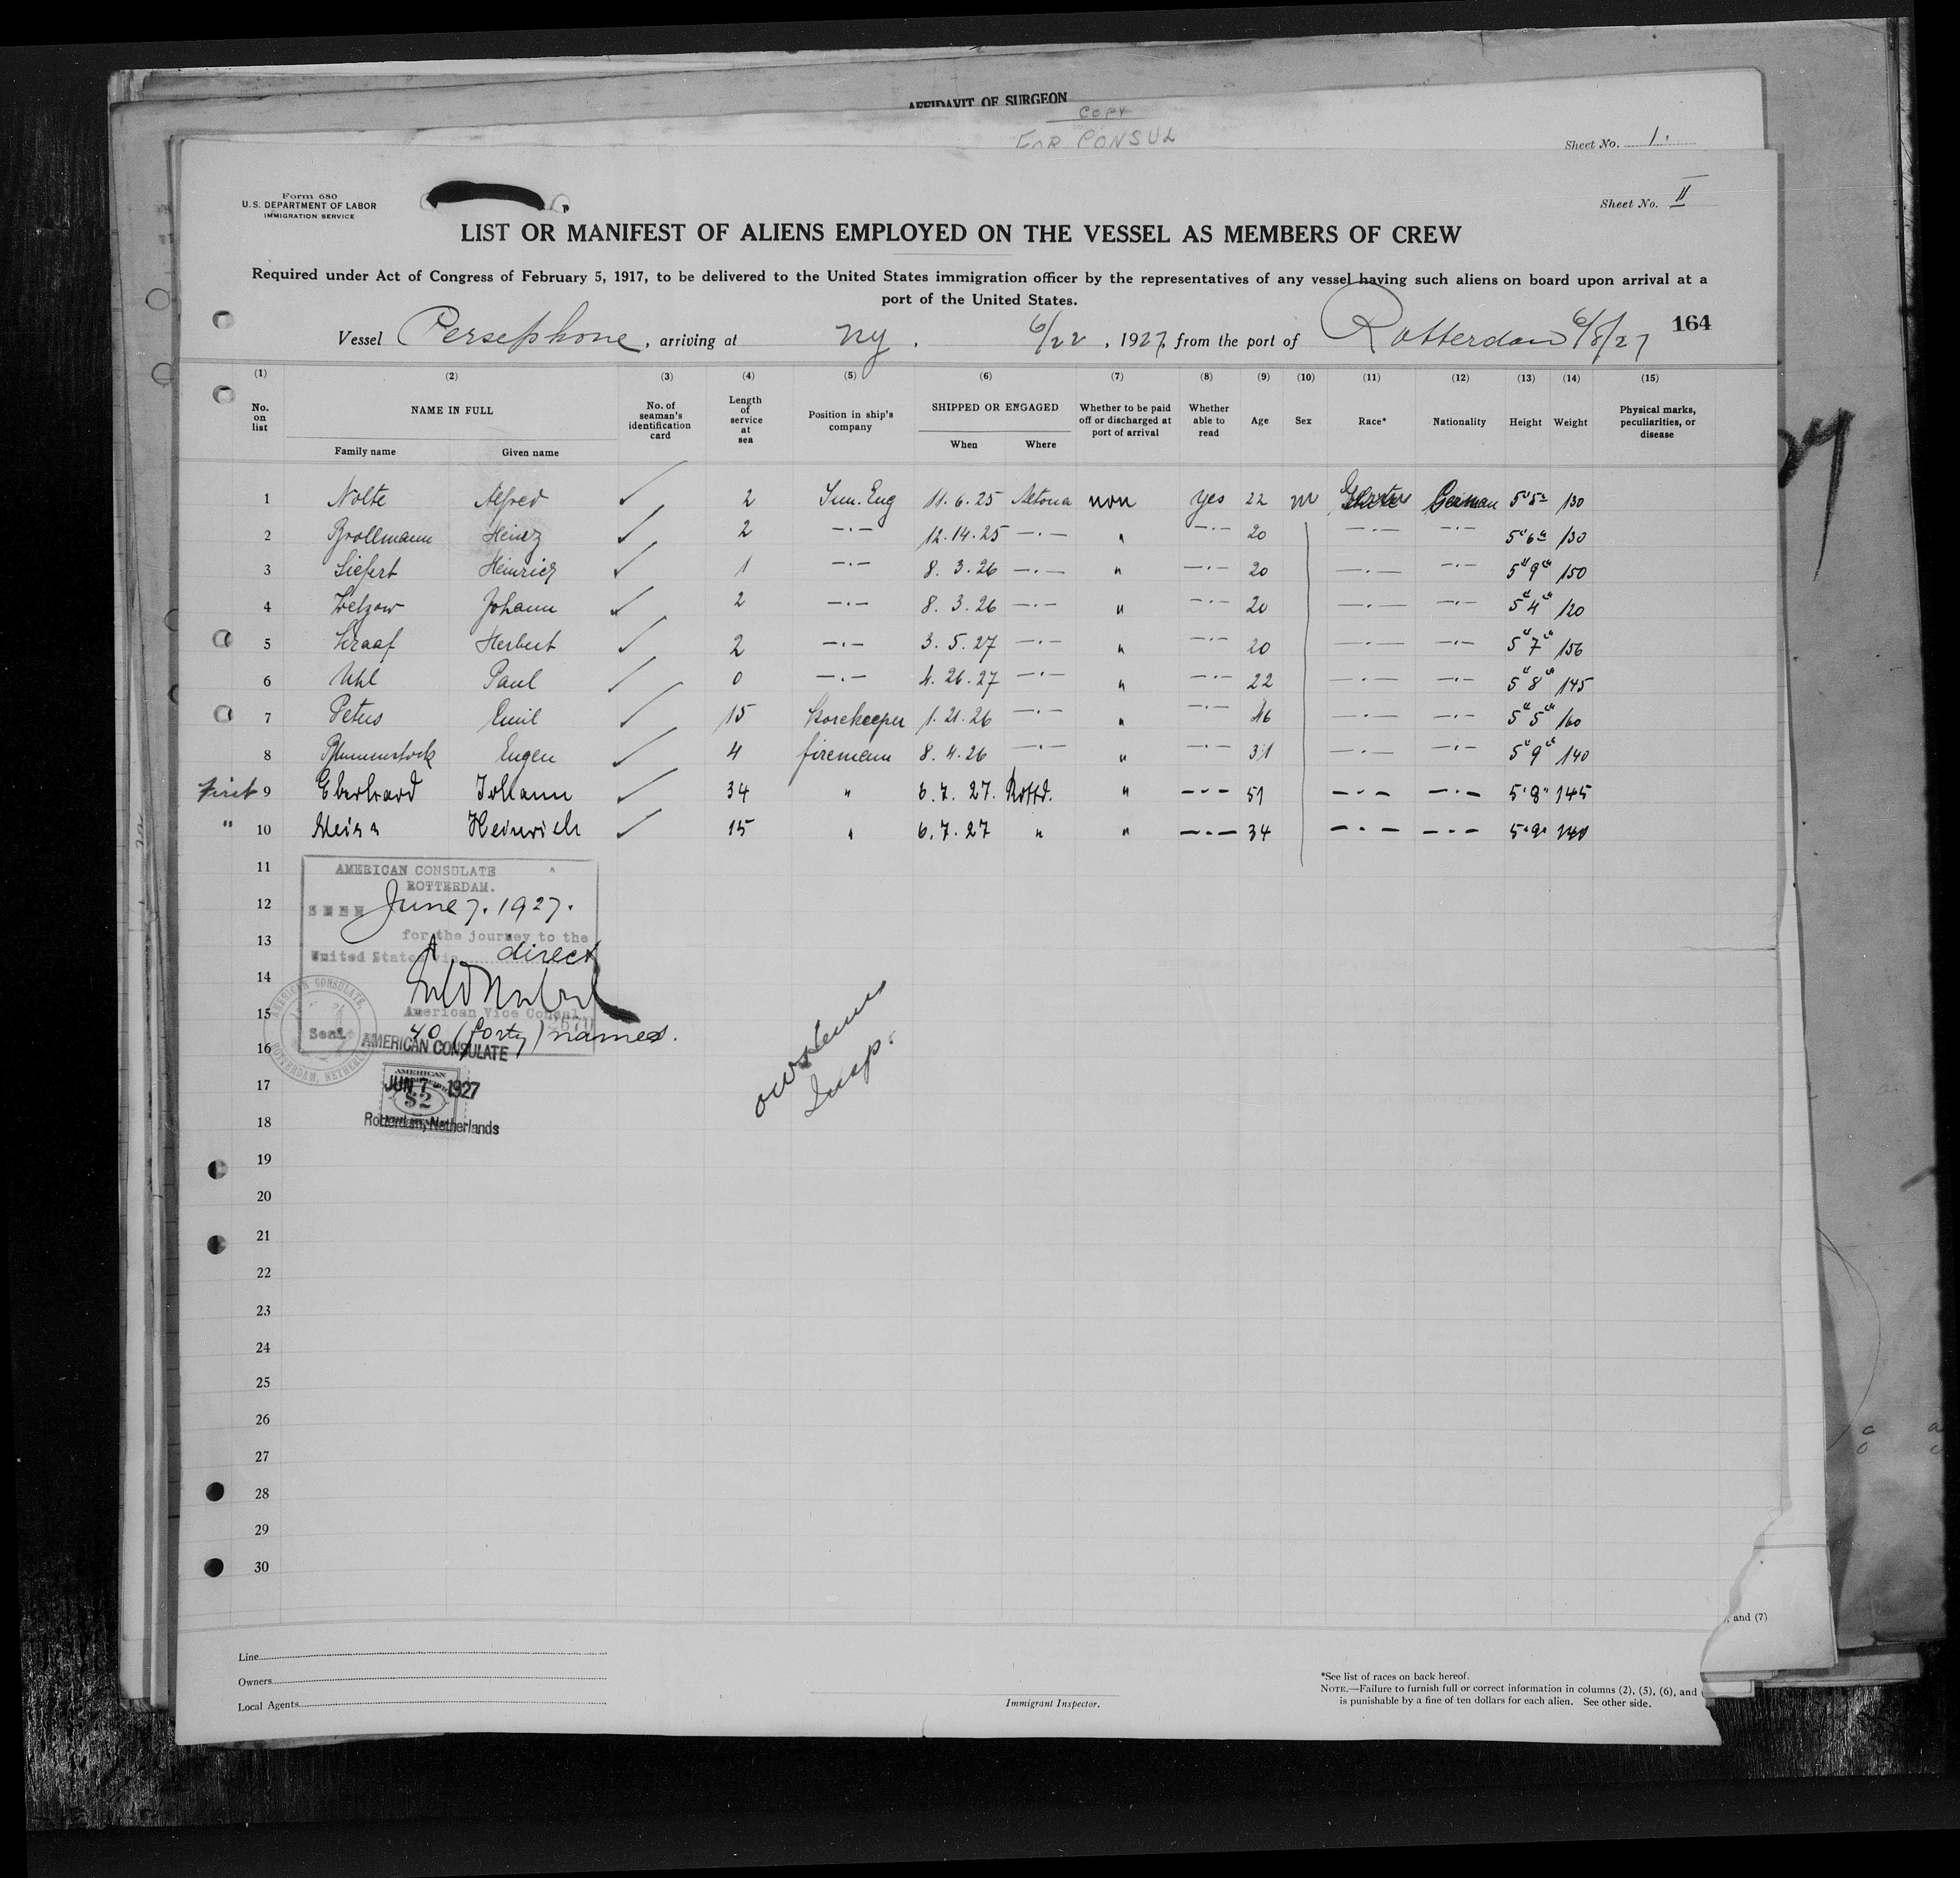 AFFIDAVIT OF SURGEON
COPY
FOR CONSUL
Sheet No. 1.
Form 680
U. S. DEPARTMENT OF LABOR
IMMIGRATION SERVICE
Sheet No. II
LIST OR MANIFEST OF ALIENS EMPLOYED ON THE VESSEL AS MEMBERS OF CREW
Required under Act of Congress of February 5, 1917, to be delivered to the United States immigration officer by the representatives of any vessel having such aliens on board upon arrival at a
port of the United States.
164
Vessel Persephone, arriving at NY. 6/22, 1927, from the port of Rotterdam 6/8/27
(1) (2) (3) (4) (5) (6) (7) (8) (9) (10) (11) (12) (13) (14) (15)
No. on list NAME IN FULL No. of seaman's identification card Length of service at sea Position in ship's company SHIPPED OR ENGAGED Whether to be paid off or discharged at port of arrival Whether able to read Age Sex Race* Nationality Height Weight Physical marks, peculiarities, or disease
Family name Given name When Where
1 Nolte Alfred ✓ 2 Jun. Eng 11.6.25 Altona non yes 22 m German 5'5" 130
2 Brollmann Heinz ✓ 2 —·— 12.14.25 —·— " —·— 20 —·— —·— 5'6" 130
3 Siefert Heinrich ✓ 1 —·— 8.3.26 —·— " —·— 20 —·— —·— 5'9" 150
4 Johann ✓ 2 —·— 8.3.26 —·— " —·— 20 —·— —·— 5'4" 120
5 Kraaf Herbert ✓ 2 —·— 3.5.27 —·— " —·— 20 —·— —·— 5'7" 156
6 Uhl Paul ✓ 0 —·— 4.26.27 —·— " —·— 22 —·— —·— 5'8" 145
7 Petus Emil ✓ 15 Storekeeper 1.21.26 —·— " —·— 46 —·— —·— 5'5" 160
8 Blumenstock Eugen ✓ 4 firemann 8.4.26 —·— " —·— 31 —·— —·— 5'9" 140
First 9 Eberhard Johann ✓ 34 " 6.7.27. Rottd. " —·— 51 —·— —·— 5'8" 145
" 10 Heinrich ✓ 15 " 6.7.27 " " —·— 34 —·— —·— 5'9" 140
11
AMERICAN CONSULATE
ROTTERDAM.
12
SEEN June 7. 1927.
13
for the journey to the
United States via direct
14
15
American Vice Consul.
2670
Seal
AMERICAN CONSULATE
ROTTERDAM, NETHERL
40 (forty) names.
16
AMERICAN CONSULATE
AMERICAN
17
JUN 7 1927
$2
18
Rotterdam, Netherlands
Insp.
19
20
21
22
23
24
25
26
27
28
29
30
, and (7)
Line
Owners
Local Agents
Immigrant Inspector.
*See list of races on back hereof.
NOTE.—Failure to furnish full or correct information in columns (2), (5), (6), and (
is punishable by a fine of ten dollars for each alien. See other side.